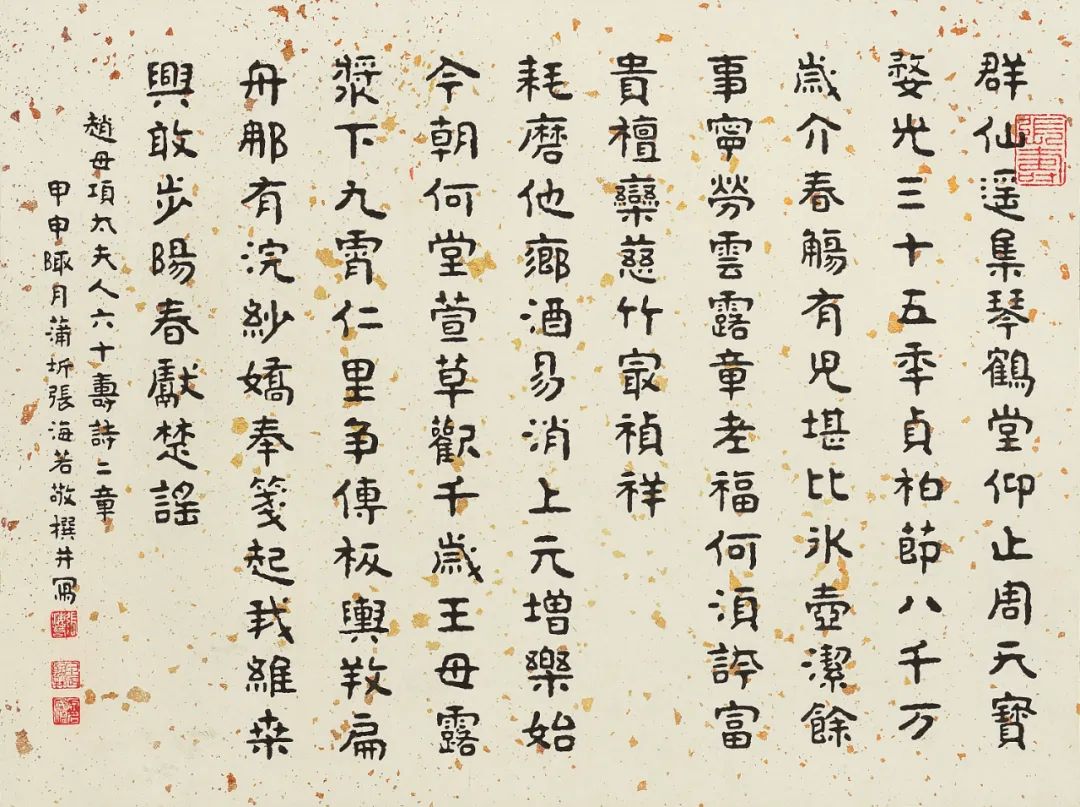 群仙遥集琴鶴堂仰止周天寶
婺光三十五年貞柏節八千万
歲介春觴有児堪比冰壺潔餘
事寧勞雲露章老福何須誇富
貴檀欒慈竹最禎祥
耗磨他鄉酒易消上元增樂始
今朝何堂萱草觀千歲王母露
漿下九霄仁里爭傳板輿敎扁
舟那有浣紗嬌奉箋起我維桑
興敢步陽春獻楚謠
趙母項太夫人六十壽詩二章
甲申陬月蒲圻張海若敬撰并寫
張壽